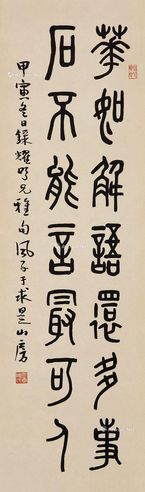 華如解語還多事
石不能言最可人
甲寅冬日錄耀明兄雅句風子于求是山房